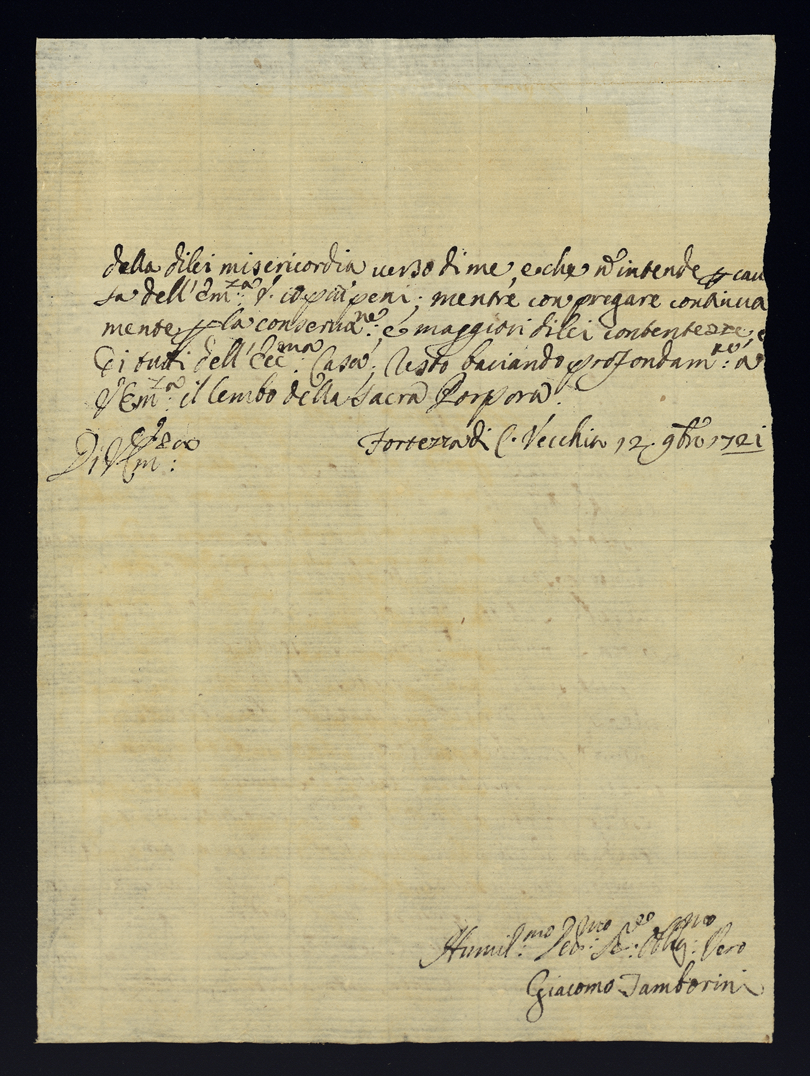 della dilei misericordia verso di me, e che nō intende ꝑ cau
sa dell'Em.za V. io più peni; mentre con pregare continua
mente ꝑ la conserva.ne: é maggiori dilei contentezze, é
di tutti dell'Ecc.ma Casa; Resto baciando profondam.te: a
V. Em.za: il lembo della Sacra Porpora.
Di V. Em.za: Fortezza di C. Vecchia 12. 9bre 1721
Humil.mo Dev.mo Se.re Oblig.mo Vero
Giacomo Tamborini